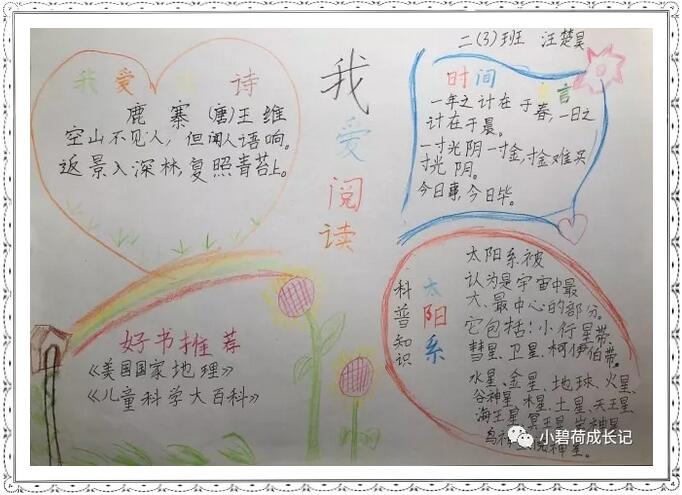 二(3)班 汪楚昊
我爱阅读
我爱 诗
鹿寨 (唐)王维
空山不见人，但闻人语响。
返景入深林，复照青苔上。
时间 言
一年之计在于春，一日之
计在于晨。
一寸光阴一寸金，寸金难买
寸光阴。
今日事，今日毕。
好书推荐
《美国国家地理》
《儿童科学大百科》
科普知识
太阳系
太阳系被
认为是宇宙中最
大、最中心的部分。
它包括：小行星带、
彗星、卫星、柯伊伯带。
水星、金星、地球、火星、
谷神星、木星、土星、天王星
海王星、冥王星、
小碧荷成长记